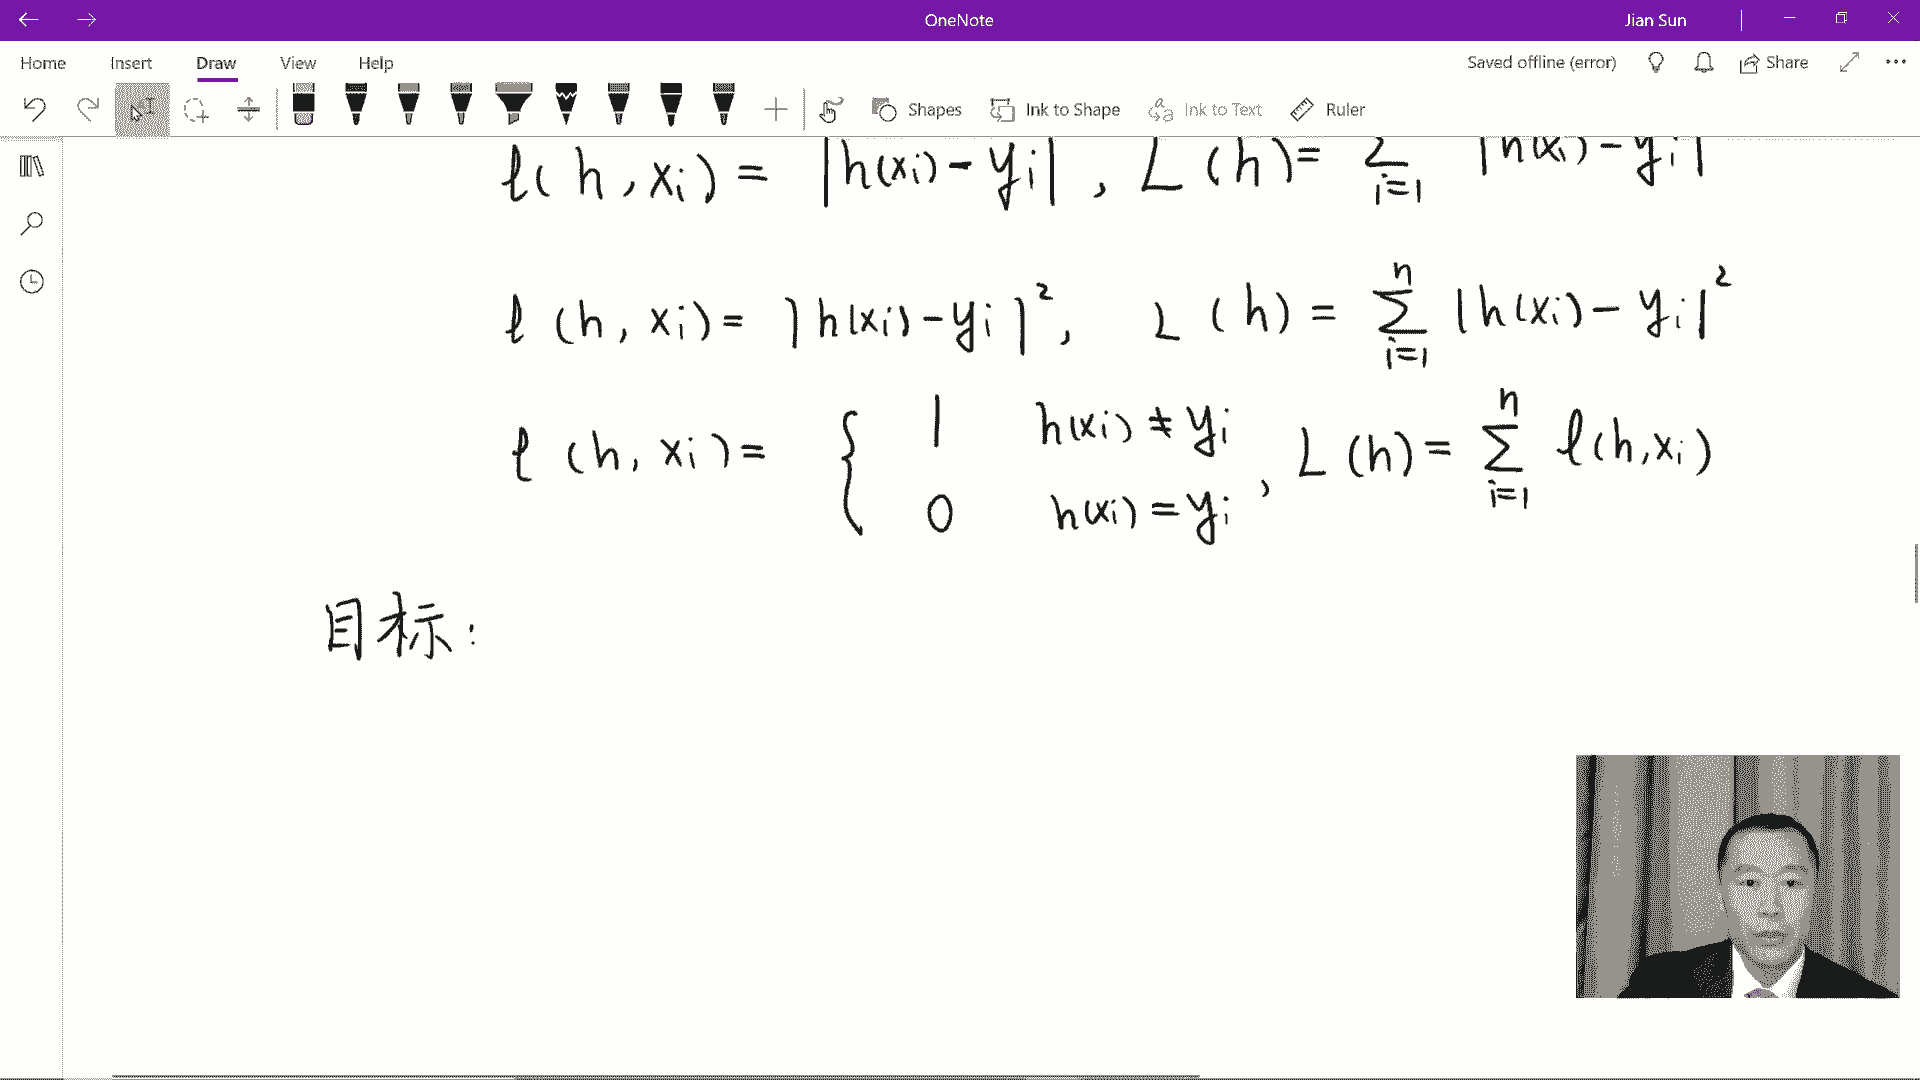 OneNote
Jian Sun
Home Insert Draw View Help
Saved offline (error) Share
Shapes Ink to Shape Ink to Text Ruler
ℓ(h, xi) = |h(xi) - yi| , L(h) = Σ i=1 |h(xi) - yi|
ℓ(h, xi) = |h(xi) - yi|², L(h) = Σ i=1 n |h(xi) - yi|²
ℓ(h, xi) = { 1 h(xi) ≠ yi
0 h(xi) = yi , L(h) = Σ i=1 n ℓ(h, xi)
目标: